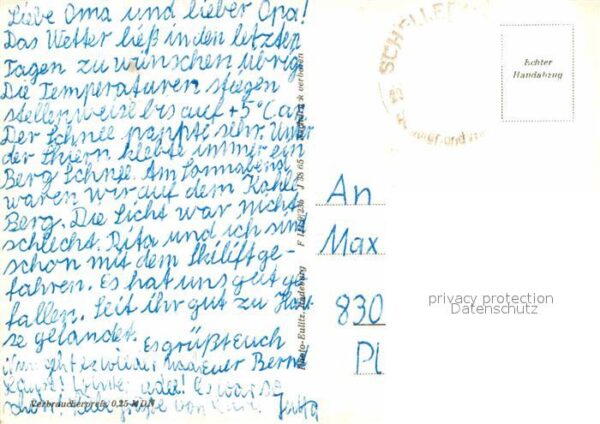 Liebe Oma und lieber Opa!
Das Wetter ließ in den letzten
Tagen zu wünschen übrig.
Die Temperaturen stiegen
stellenweise bis auf +5°C an.
Der Schnee pappte sehr. Unter
der Skiern klebte immer ein
Berg Schnee. Am Sonnabend
waren wir auf dem Kahle
Berg. Die Sicht war nicht
schlecht. Rita und ich sind
schon mit dem Skilift ge-
fahren. Es hat uns gut ge-
fallen. Seit ihr gut zu Hau-
se gelandet.
Es grüßt Euch
geht es wieder Euer Bernd
Es war so
Grüße von Jutta
Verbraucherpreis 0,25 MDN
Foto-Eulitz,
Nachdruck verboten
SCHELLER
Echter
Handabzug
An
Max
830
Pl
privacy protection
Datenschutz